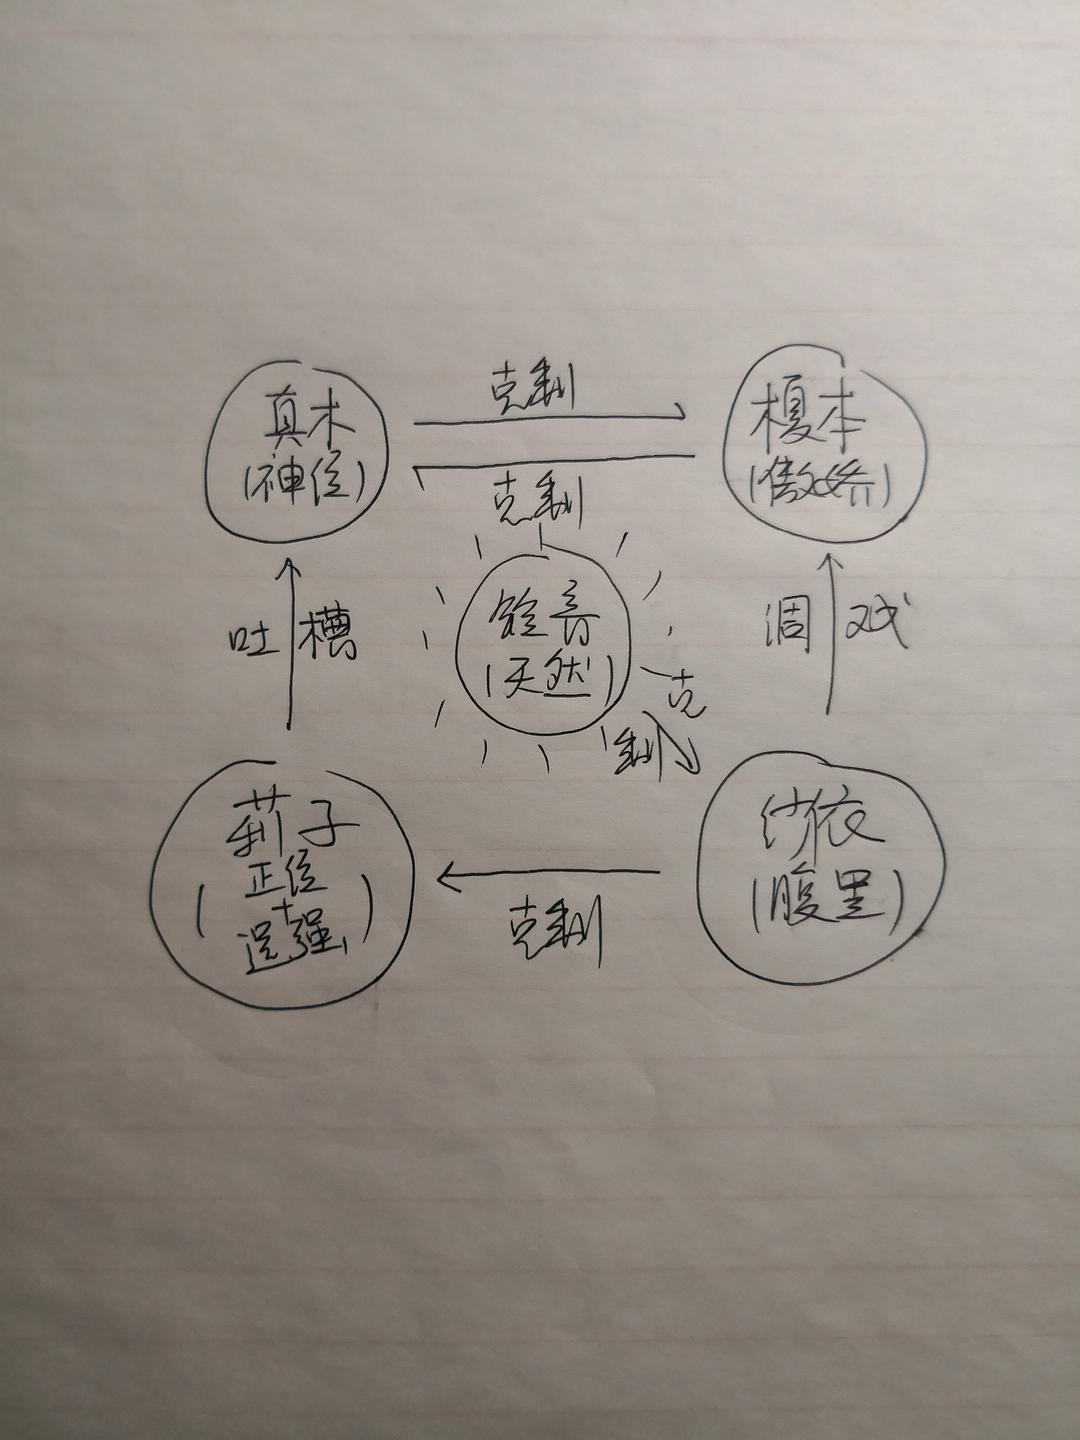 克制
真木
(神位)
榎本
(傲娇)
克制
铃音
(天然)
吐槽
调戏
克
制
莉子
(正位
+
逞强)
纱依
(腹黑)
克制